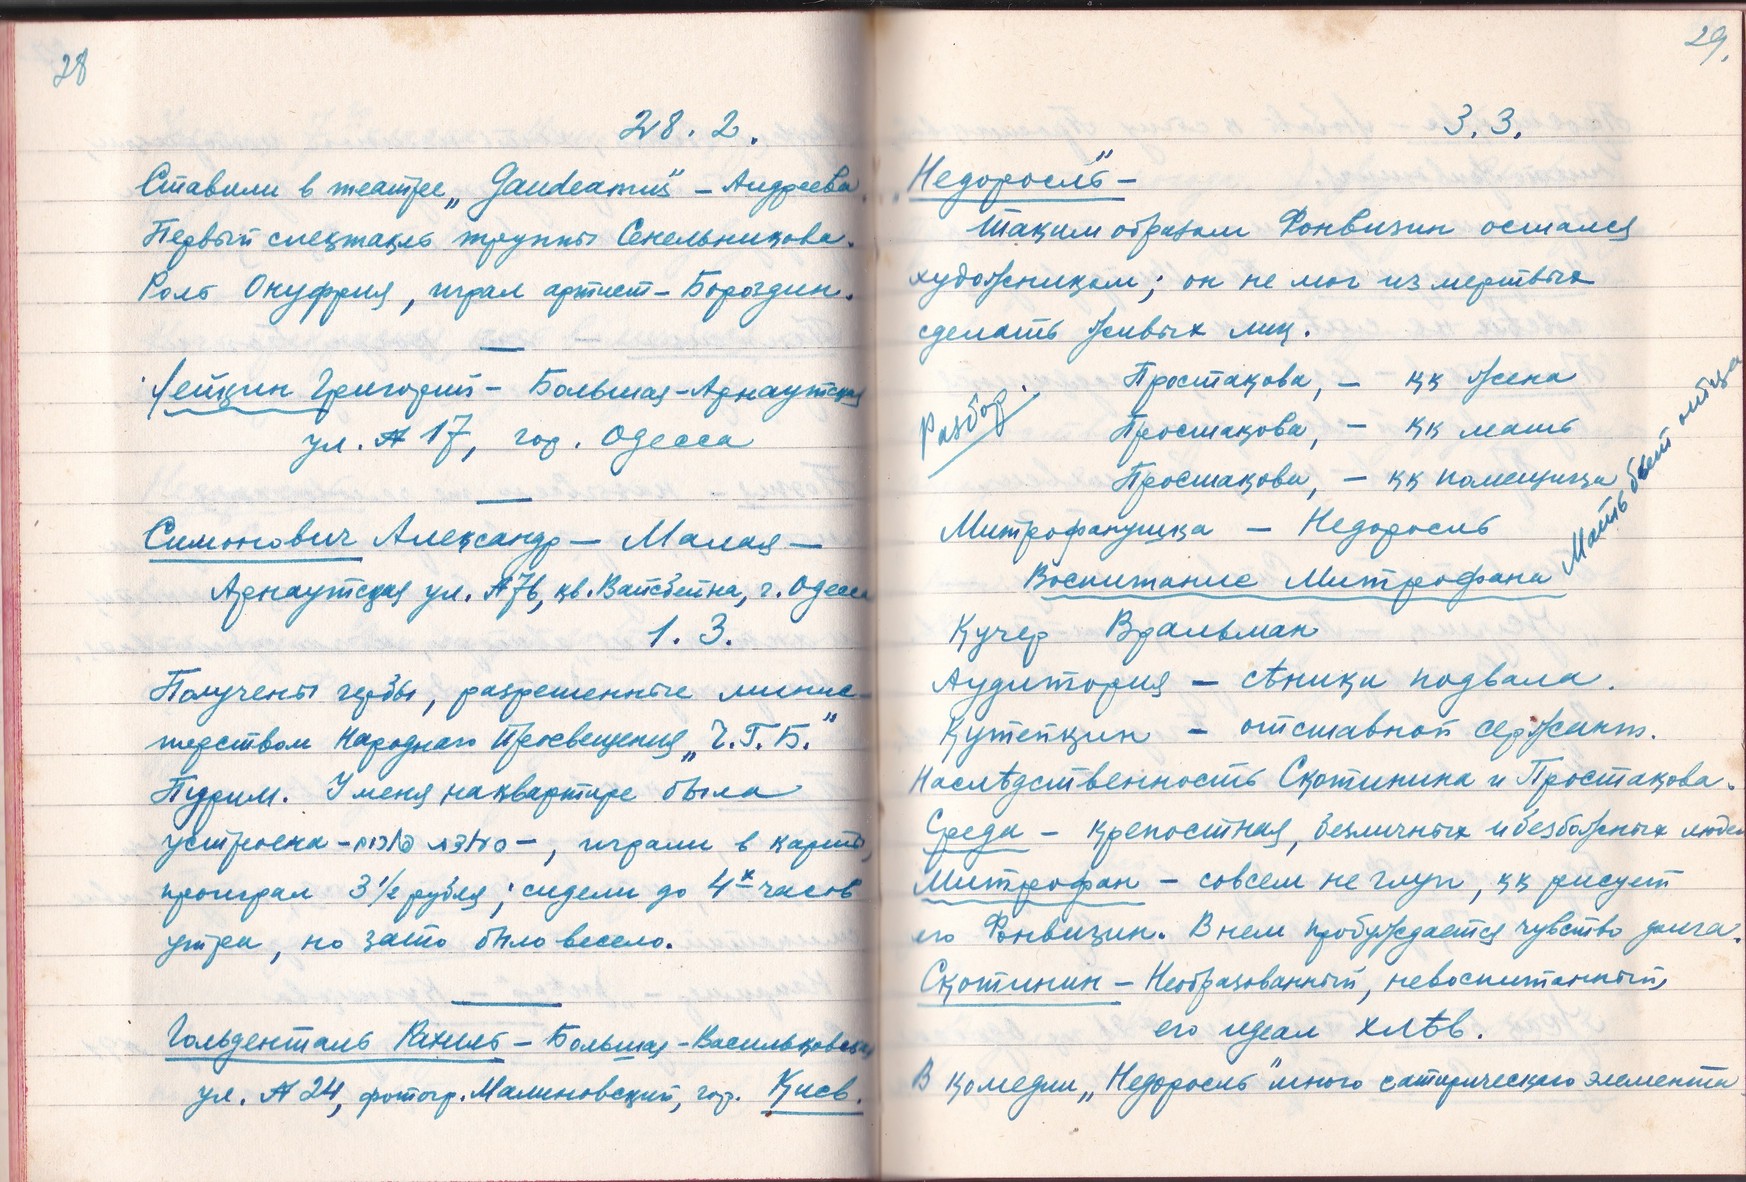 28
28. 2.
Ставили в театре „Gaudeamus" – Андреева.
Первый спектакль труппы Сенельникова.
Роль Онуфрия, играл артист – Бороздин.
Лейкин Григорий – Большая-Арнаутская
ул. № 17, гор. Одесса
Симонович Александр – Малая –
Арнаутская ул. № 76, кв. Вайсбейна, г. Одесса
1. 3.
Получены гербы, разрешенные минис-
терством Народнаго Просвещения „Ч.Г.Б."
Пурим. У меня на квартире была
устроена – –, играли в карты,
проиграл 3 1/2 рубля; сидели до 4х часов
утра, но зато было весело.
Гольденталь Рахиль – Большая-Васильковская
ул. № 24, фотогр. Малиновский, гор. Киев.
29.
3. 3.
„Недоросль" –
Таким образом Фонвизин остался
художником; он не мог из мертвых
сделать живых лиц.
Разбор.
Простакова, – кк жена
Простакова, – кк мать
Простакова, – кк помещица
Мать бьет отца
Митрофанушка – Недоросль
Воспитание Митрофана
Кучер Вральман
Аудитория – сѣники подвала.
Кутейкин – отставной сержант.
Наслѣдственность Скотинина и Простакова.
Среда – крепостная, безличных и безбожных людей
Митрофан – совсем не глуп, кк рисует
его Фонвизин. В нем пробуждается чувство долга.
Скотинин – Необразованный, невоспитанный,
его идеал хлѣв.
В комедии „Недоросль" много сатирическаго элемента.